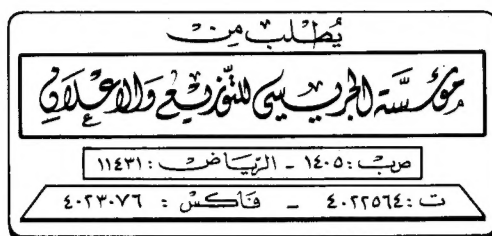 يُطلب من
مؤسّسة الجريسي للتّوزيع والإعلان
ص.ب: ١٤٠٥ - الرّياض: ١١٤٣١
ت: ٤٠٢٢٥٦٤ - فاكس: ٤٠٢٣٠٧٦